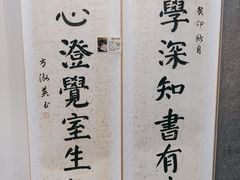 癸卯秋月
學深知書有
心澄覺室生
方海英書